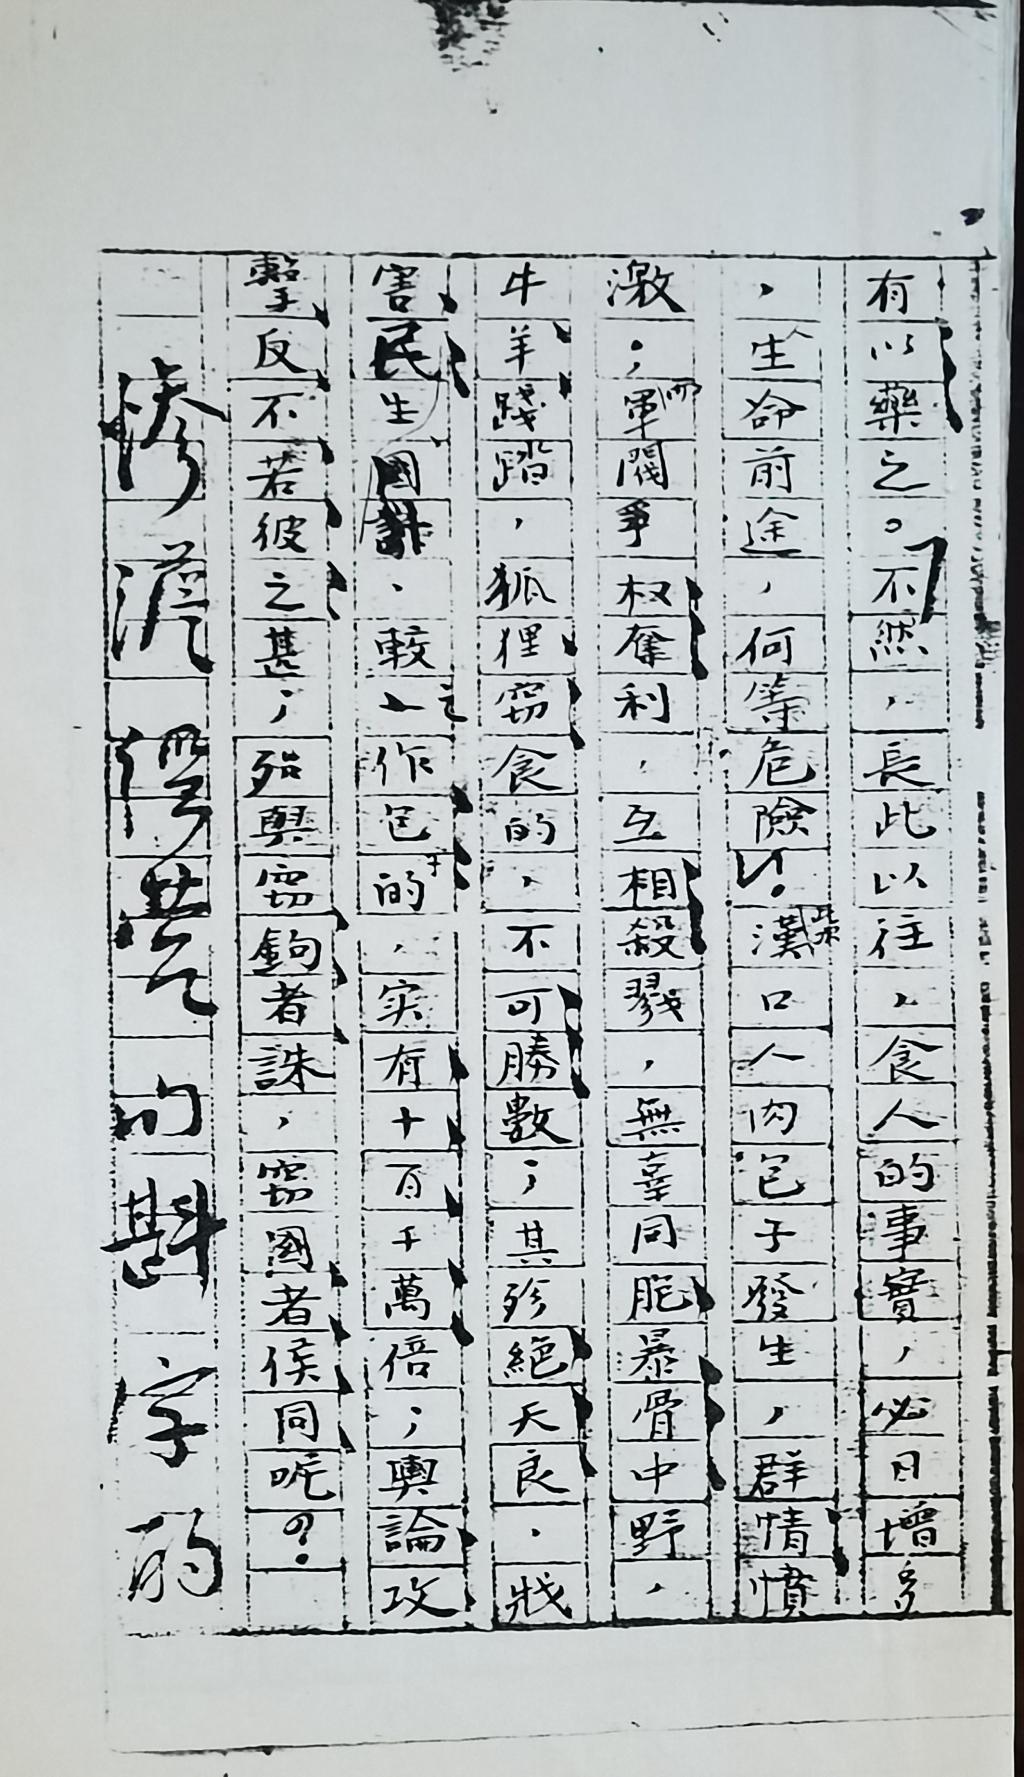 有以藥之。不然,長此以往,食人的事實,必日增多
,生命前途,何等危險!柴漢口人肉包子發生,群情憤
激;而軍閥爭权奪利,互相殺戮,無辜同胞暴骨中野,
牛羊踐踏,狐狸窃食的,不可勝數;其殄絕天良,戕
害民生國計,較之人作包子的,实有十百千萬倍;輿論攻
擊反不若彼之甚;殆與窃鉤者誅,窃國者侯同呢?
慘澹 的斟字酌